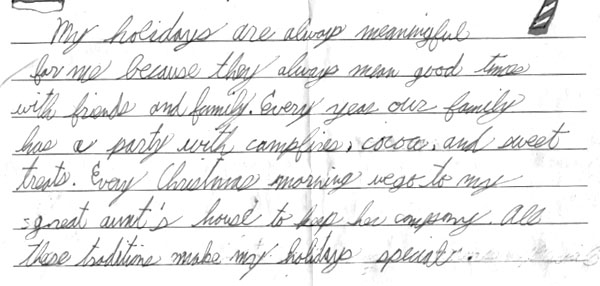 My holidays are always meaningful
for me because they always mean good times
with friends and family. Every year our family
has a party with campfires, cocoa, and sweet
treats. Every Christmas morning we go to my
great aunt's house to keep her company. All
these traditions make my holidays special.